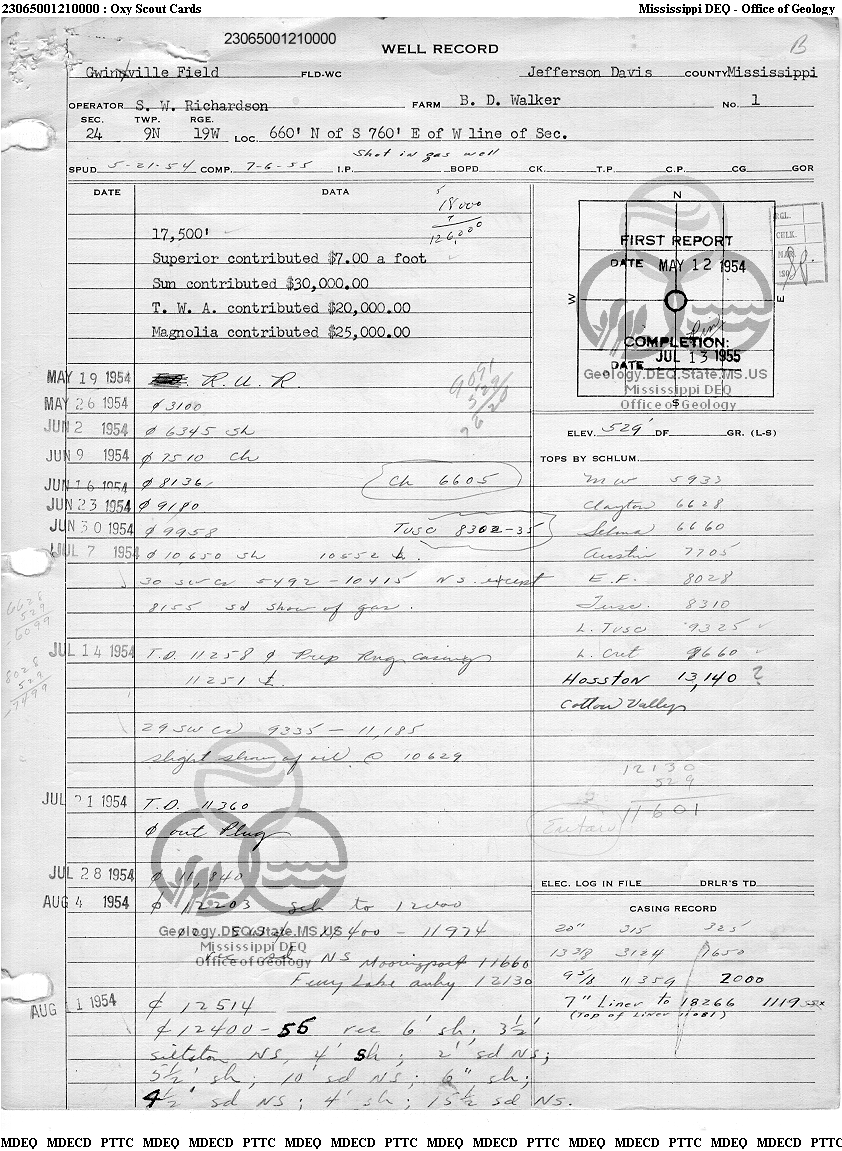 23065001210000 : Oxy Scout Cards Mississippi DEQ - Office of Geology
23065001210000
WELL RECORD
B
Gwinville Field FLD-WC Jefferson Davis COUNTY Mississippi
OPERATOR S. W. Richardson FARM B. D. Walker No. 1
SEC. TWP. RGE.
24 9N 19W LOC. 660' N of S 760' E of W line of Sec.
Shut in gas well
SPUD 5-21-54 COMP. 7-6-55 I.P. BOPD CK. T.P. C.P. CG GOR
DATE DATA
18000
7
126,000
17,500'
Superior contributed $7.00 a foot
Sun contributed $30,000.00
T. W. A. contributed $20,000.00
Magnolia contributed $25,000.00
N
W E
S
FIRST REPORT
DATE MAY 12 1954
COMPLETION:
DATE JUL 13 1955
Geology.DEQ.State.MS.US
Mississippi DEQ
Office of Geology
MAY 19 1954 R. U. R.
MAY 26 1954 ¢ 3100
JUN 2 1954 ¢ 6345 sh
JUN 9 1954 ¢ 7510 Ch
JUN 16 1954 ¢ 8136 Ch 6605
JUN 23 1954 ¢ 9180
JUN 30 1954 ¢ 9958 Tusc 8302-35
JUL 7 1954 ¢ 10650 sh 10552 L.
30 SWCs 5492-10415 N.S. except
8155 sd show of gas.
6628
529
6099
JUL 14 1954 T.D. 11258 ¢ Prep Rng. casing
11251 L.
8028
529
7499
29 SWCs 9335 - 11,185
slight show of oil @ 10629
JUL 21 1954 T.D. 11360
¢ out Plug
JUL 28 1954 ¢ 11,840
AUG 4 1954 ¢ 12203 sch to 12000
11400 - 11974
Geology.DEQ.State.MS.US
Mississippi DEQ
Office of Geology
rec sd NS Mooringsport 11660
Ferry Lake anhy 12130
AUG 11 1954 ¢ 12514
¢ 12400-55 rec 6' sh; 3½'
siltston NS, 4' sh; 2' sd NS;
5½' sh; 10' sd NS; 6" sh;
4½' sd NS; 4' sh; 15½ sd NS.
ELEV. 529' DF GR. (L-S)
TOPS BY SCHLUM.
MW 5933
Clayton 6628
Selma 6660
Austin 7705
E.F. 8028
Tusc. 8310
L. Tusc 9325
L. Cret 9660
Hosston 13,140 ?
Cotton Valley
12130
529
11601
Eutaw
ELEC. LOG IN FILE DRLR'S TD
CASING RECORD
20" 315 325
13 3/8 3124 1650
9 5/8 11359 2000
7" Liner to 18266 1119 sx
(Top of Liner 11081)
MDEQ MDECD PTTC MDEQ MDECD PTTC MDEQ MDECD PTTC MDEQ MDECD PTTC MDEQ MDECD PTTC MDEQ MDECD PTTC